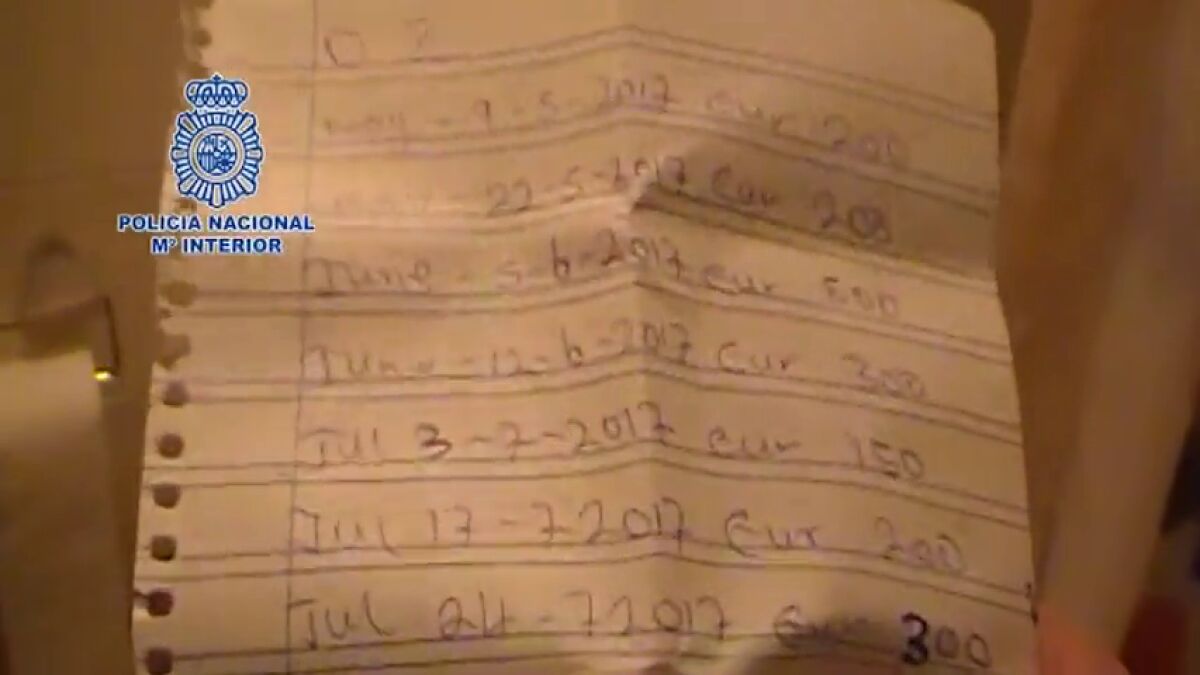 POLICIA NACIONAL
Mº INTERIOR
May - 9-5-2017 Eur 200
22-5-2017 Eur 200
June - 5-6-2017 Eur 500
June - 12-6-2017 Eur 300
Jul 3-7-2017 eur 150
Jul 17-7 2017 Eur 200
Jul 24-7 2017 Eur 300